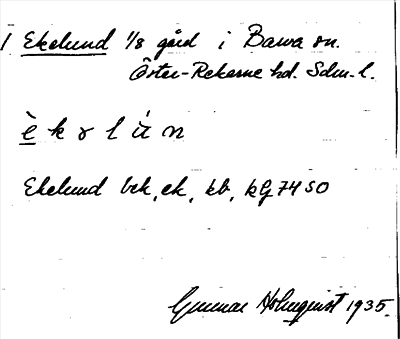 1 Ekelund 1/8 gård i Bawa sn.
Öster-Rekarne hd. Sdm. l.
è k ɤ l ú n
Ekelund bek, ek, kb, kG 74 SO
Gunnar Holmquist 1935.